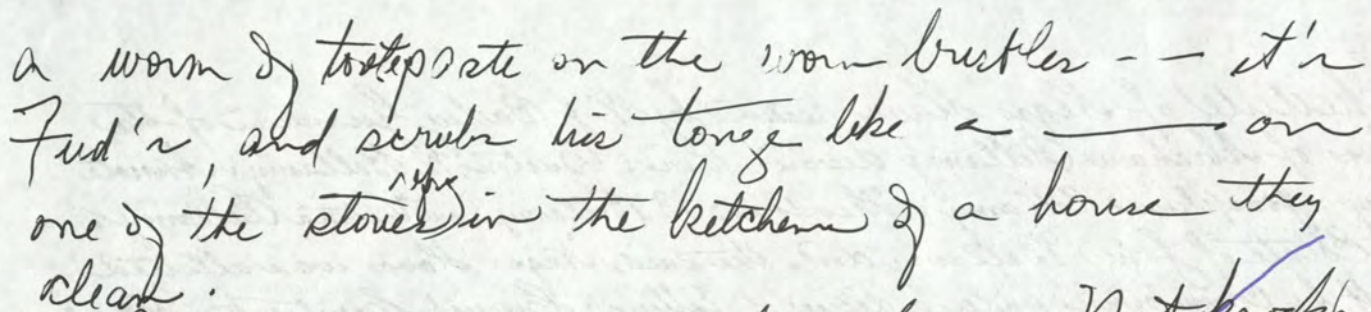 a worm of toothpaste on the worn bristles -- it's
Fud's, and scrubs his tonge like a ——— on
one of the stoves in the kitchens of a house they
clean.